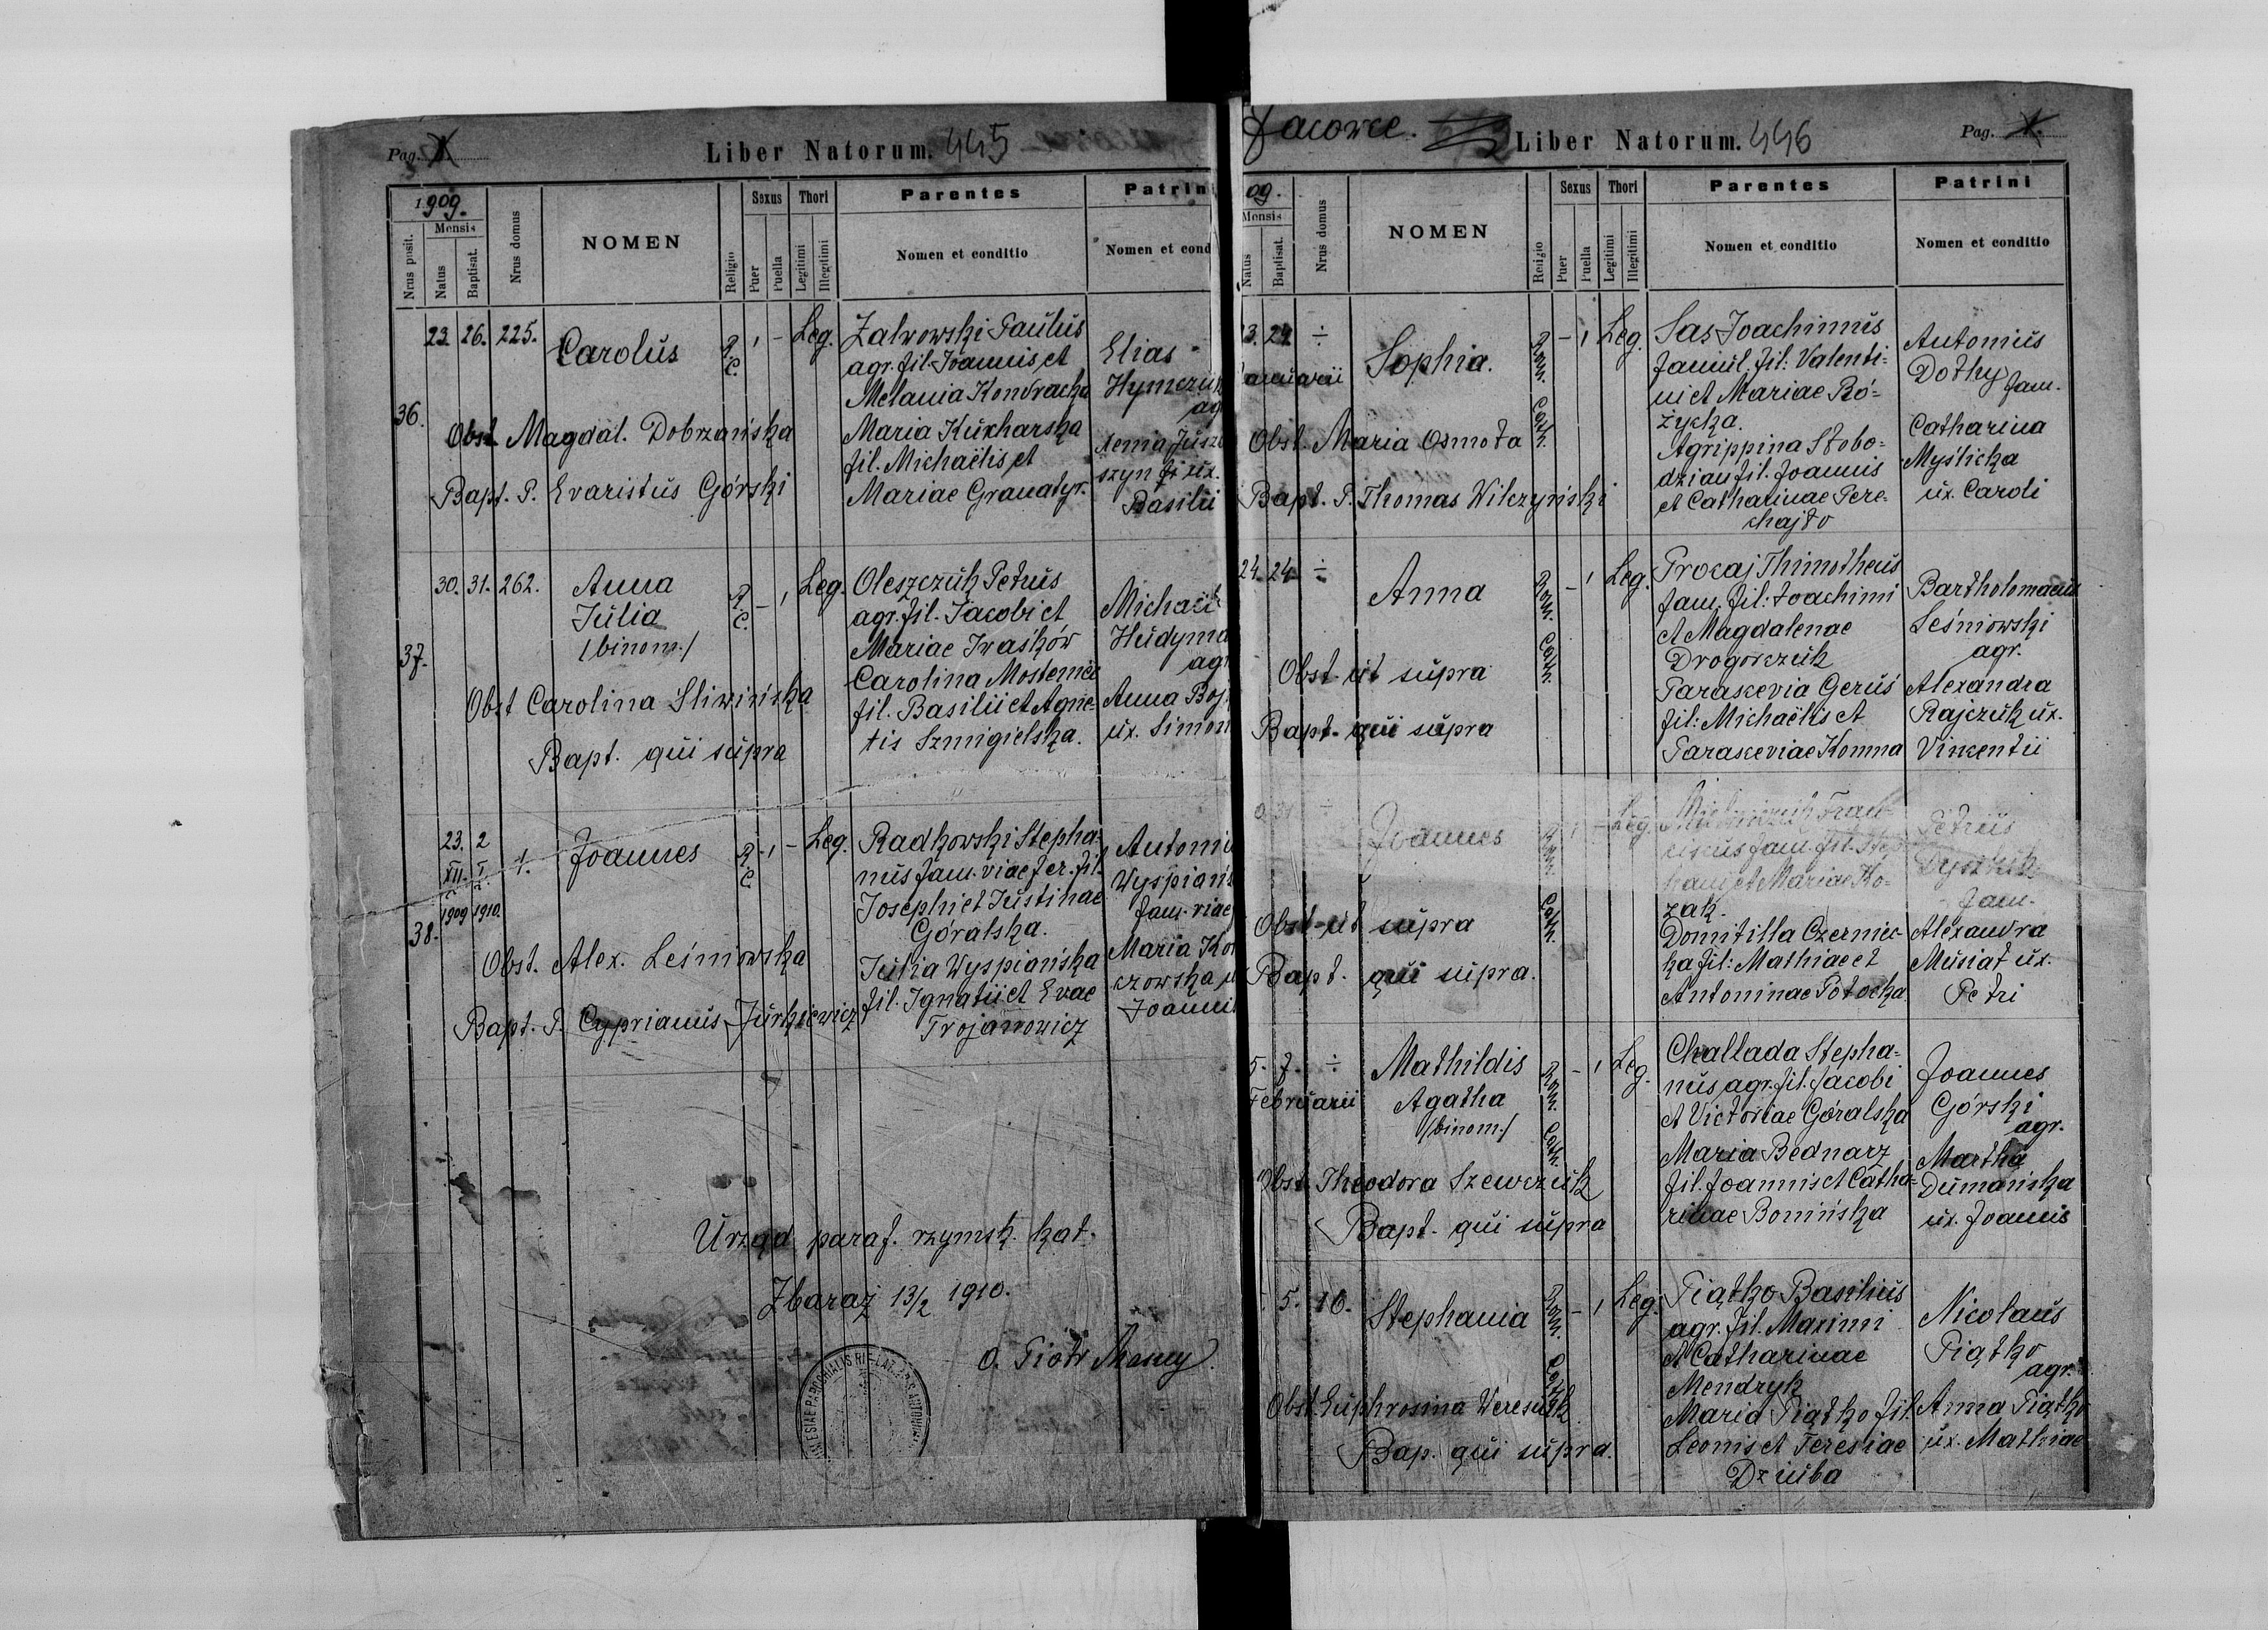 Pag.
Liber Natorum. 445
1909.
Nrus posit.
Mensis
Natus
Baptisat.
Nrus domus
NOMEN
Religio
Sexus
Puer
Puella
Thori
Legitimi
Illegitimi
Parentes
Nomen et conditio
Patrin
Nomen et cond
36.
23. 26. 225. Carolus R. C. 1 - Leg.
Obst. Magdal. Dobrzańska
Bapt. P. Evaristus Górski
Zalwowski Paulus
agr. fil. Joannis et
Melania Kondracka
Maria Kucharska
fil. Michaëlis et
Mariae Granatyr.
Elias
Hymczuk
agr
szyn
ux.
Basilii
37.
30. 31. 262. Anna R. C. - 1 Leg.
Julia
/binom./
Obst Carolina Sliwińska
Bapt. qui supra
Oleszczuk Petrus
agr. fil. Jacobi et
Mariae Iwaśków
Carolina
fil. Basilii et Agne-
tis Szmigielska.
Michaël
Hudyma
agr
Anna Boj
ux. Simon
38.
23. 2
XII. I. 1. Joannes R. C. 1 - Leg.
1909 1910.
Obst. Alex. Leśniowska
Bapt. P. Cyprianus Jurkiewicz
Radkowski Stepha-
nus fam. viae fer. fil.
Josephi et Justinae
Góralska.
Julia Wyspiańska
fil. Ignatii et Evae
Trojanowicz
Antoni
Wyspiańs
fam. viae
Maria Ko
czowska u
Joannis
Urząd paraf. rzymsk. kat.
Zbaraż 13/2 1910.
O. Piotr
Jacowce.
Liber Natorum. 446
Pag.
09.
Mensis
Natus
Baptisat.
Nrus domus
NOMEN
Religio
Sexus
Puer
Puella
Thori
Legitimi
Illegitimi
Parentes
Nomen et conditio
Patrini
Nomen et conditio
3. 24. ÷ Sophia. Rom. Cath. - 1 Leg.
anuarii
Obst. Maria Osmota
Bapt. P. Thomas Wilczyński
Sas Joachimus
famul. fil. Valenti-
ni et Mariae Ró-
życka.
Agrippina Słobo-
dzian fil. Joannis
et Catharinae Pere-
chajło
Antonius
Dothy fam.
Catharina
Myślicka
ux. Caroli
24. 24. ÷ Anna Rom. Cath. - 1 Leg.
Obst. ut supra
Bapt. qui supra
Prokaj Thimotheus
fam. fil: Joachimi
et Magdalenae
Drogorczuk
Paraskevia Geruś
fil: Michaëlis et
Paraskeviae Komna
Bartholomaeus
Leśniowski
agr.
Alexandra
Rajczuk ux.
Vincentii
Joannes Rom. Cath. 1 - Leg.
Obst. ut supra
Bapt. qui supra.
Fran-
ciscus fam. fil. Step
hani et Mariae Ko-
zak.
Domitilla Czernec-
ka fil: Mathiae et
Antoninae Potocka
Petrus
fam.
Alexandra
Musiat ux.
Petri
5. 7. ÷ Mathildis Rom. Cath. - 1 Leg.
Februarii Agatha
/binom./
Obst. Theodora Szewczuk
Bapt. qui supra
Challada Stepha-
nus agr. fil. Jacobi
et Victoriae Góralska
Maria Bednarz
fil. Joannis et Catha-
rinae Bonińska
Joannes
Górski
agr.
Martha
Dumańska
ux. Joannis
5. 16. Stephania Rom. Cath. - 1 Leg.
Obst. Euphrosina Weresiuk
Bap. qui supra.
Piątko Basilius
agr. fil. Maximi
et Catharinae
Mendryk
Maria Piątko fil.
Leonis et Teresiae
Dziuba
Nicolaus
Piątko
agr.
Anna Piątko
ux. Mathiae